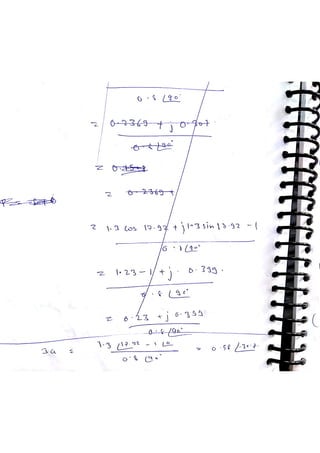 0.8 ∠90°
= 0.2369 + j 0.907
0.8 ∠90°
=
= 0.2369 +
= 1.3 cos 17.92 + j 1.3 sin 17.92 - 1
0.8 ∠90°
= 1.23 - 1 + j 0.399.
0.8 ∠90°
= 0.23 + j 0.399
0.8 ∠90°
Ia = 1.3 ∠17.92 - 1 ∠0 = 0.58 ∠
0.8 ∠90°